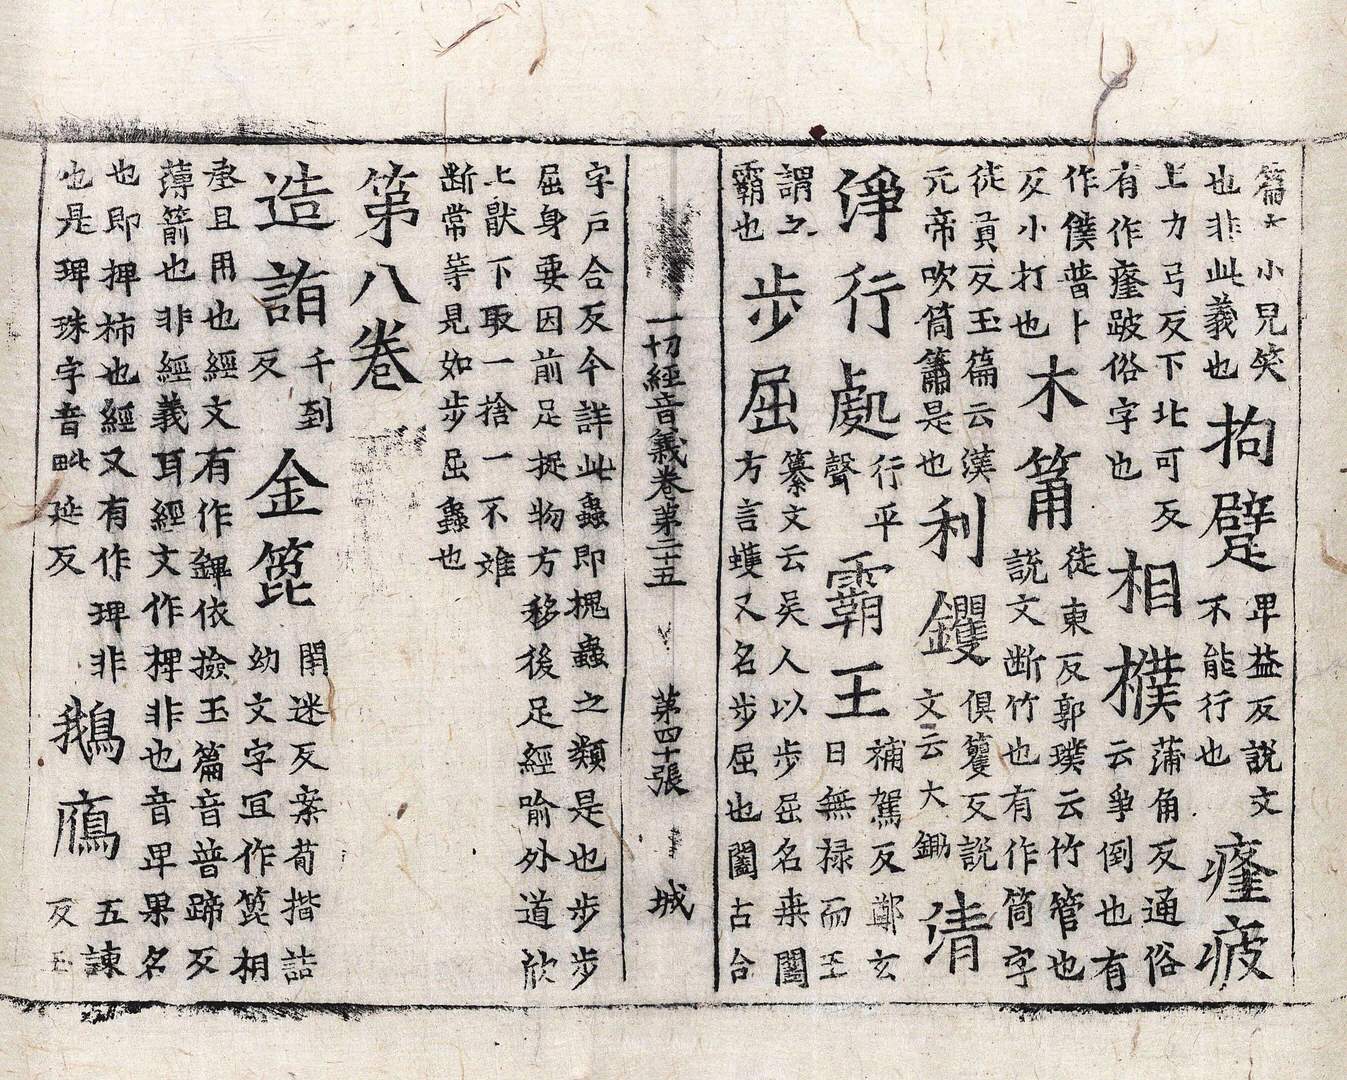 篇小兒笑也非此義也拘躄卑益反說文不能行也癃疲
上力弓反下北可反有作癃跛俗字也相撲蒲角反通俗云爭倒也有
作僕普卜反小打也木筩徒東反郭璞云竹管也說文断竹也有作筒字
徒貢反玉篇云漢元帝吹筒簫是也利钁俱籰反說文云大鋤清
淨行處行平聲霸王補駕反鄭玄曰無禄而王
謂之霸也步屈纂文云吳人以步屈名桒闔方言蠖又名步屈也闔古合
一切經音義卷第二十五 第四十張 城
字戶合反今詳此蟲即槐蟲之類是也步步屈身要因前足捉物方移後足經喻外道欣
上猒下取一捨一不離断常等見如步屈蟲也
第八卷
造詣千到反金箆閇迷反案荀揩詰幼文字宜作箆相
承且用也經文有作錍依撿玉篇音普蹄反薄箭也非經義耳經文作椑非也音卑果名
也即押柿也經又有作琕非也是琕珠字音毗延反鵝鴈五諫反